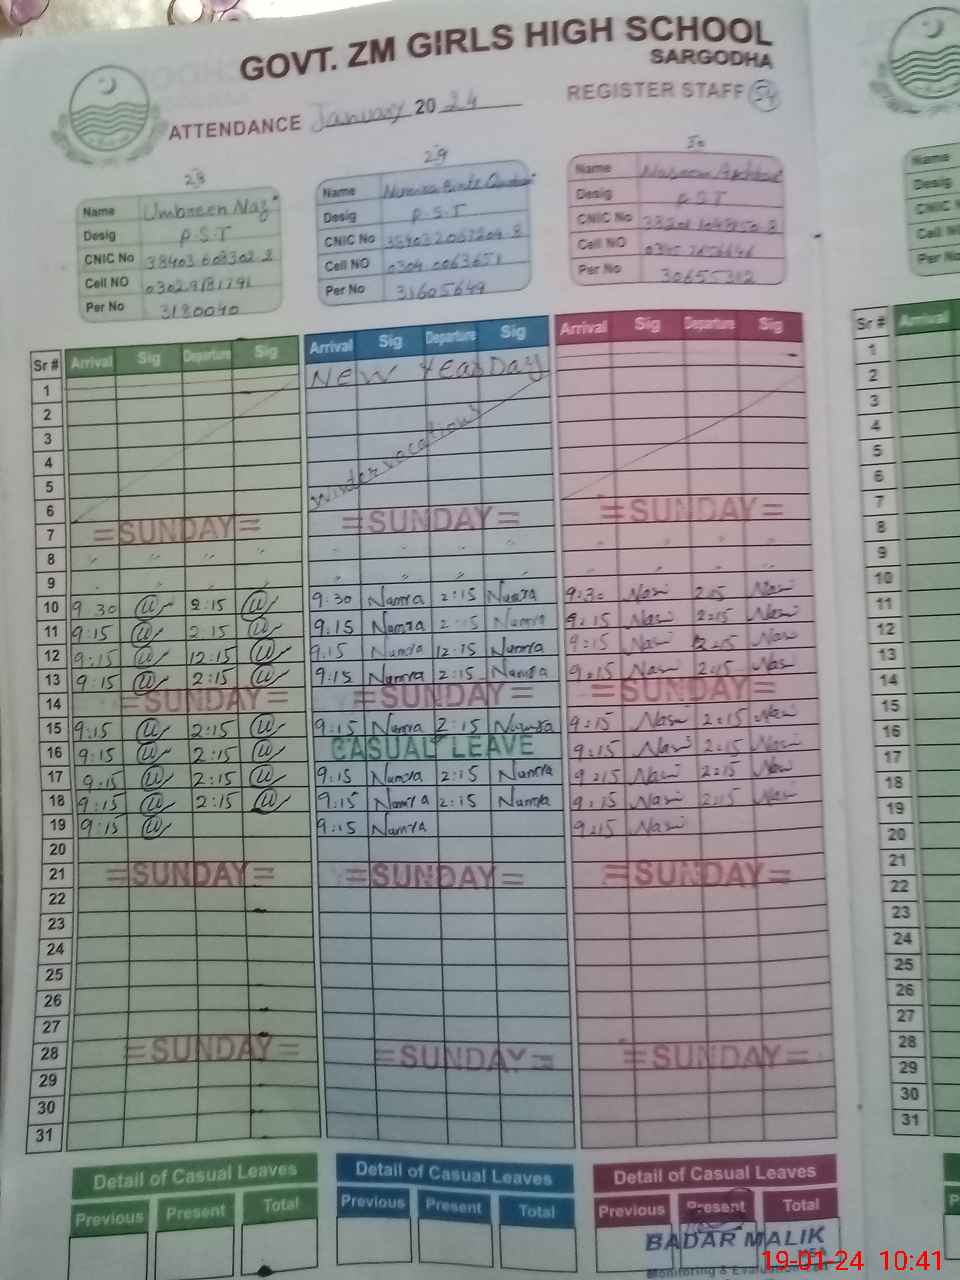 GOVT. ZM GIRLS HIGH SCHOOL
SARGODHA
ATTENDANCE January 2024 REGISTER STAFF 54
28 29 30
Name Umbreen Naz Name Name Naseem
Desig P.S.T Desig P.S.T Desig P.S.T
CNIC No CNIC No CNIC No
Cell NO Cell NO 0304 0063651 Cell NO
Per No 3180040 Per No 31605649 Per No 30655312
Sr # Arrival Sig Departure Sig Arrival Sig Departure Sig Arrival Sig Departure Sig Sr # Arrival
1 NEW Year Day 1
2 2
3 3
4 Winter vacations 4
5 5
6 6
7 =SUNDAY= =SUNDAY= =SUNDAY= 7
8 " " " " 8
9 9
10 9:30 2:15 9:30 Namra 2:15 Namra 9:30 Nasi 2:15 Nasi 10
11 9:15 2:15 9:15 Namra 2:15 Namra 9:15 Nasi 2:15 Nasi 11
12 9:15 12:15 9:15 Namra 12:15 Namra 9:15 Nasi Nasi 12
13 9:15 2:15 9:15 Namra 2:15 Namra 9:15 Nasi 2:15 Nasi 13
14 =SUNDAY= =SUNDAY= =SUNDAY= 14
15 9:15 2:15 9:15 Namra 2:15 Namra 9:15 Nasi 2:15 Nasi 15
16 9:15 2:15 CASUAL LEAVE 9:15 Nasi 2:15 Nasi 16
17 9:15 2:15 9:15 Namra 2:15 Namra 9:15 Nasi 2:15 Nasi 17
18 9:15 2:15 9:15 Namra 2:15 Namra 9:15 Nasi 2:15 Nasi 18
19 9:15 9:15 Namra 9:15 Nasi 19
20 20
21 =SUNDAY= =SUNDAY= =SUNDAY= 21
22 22
23 23
24 24
25 25
26 26
27 27
28 =SUNDAY= =SUNDAY= =SUNDAY= 28
29 29
30 30
31 31
Detail of Casual Leaves Detail of Casual Leaves Detail of Casual Leaves
Previous Present Total Previous Present Total Previous Present Total
BADAR MALIK
Monitoring &
19-01-24 10:41